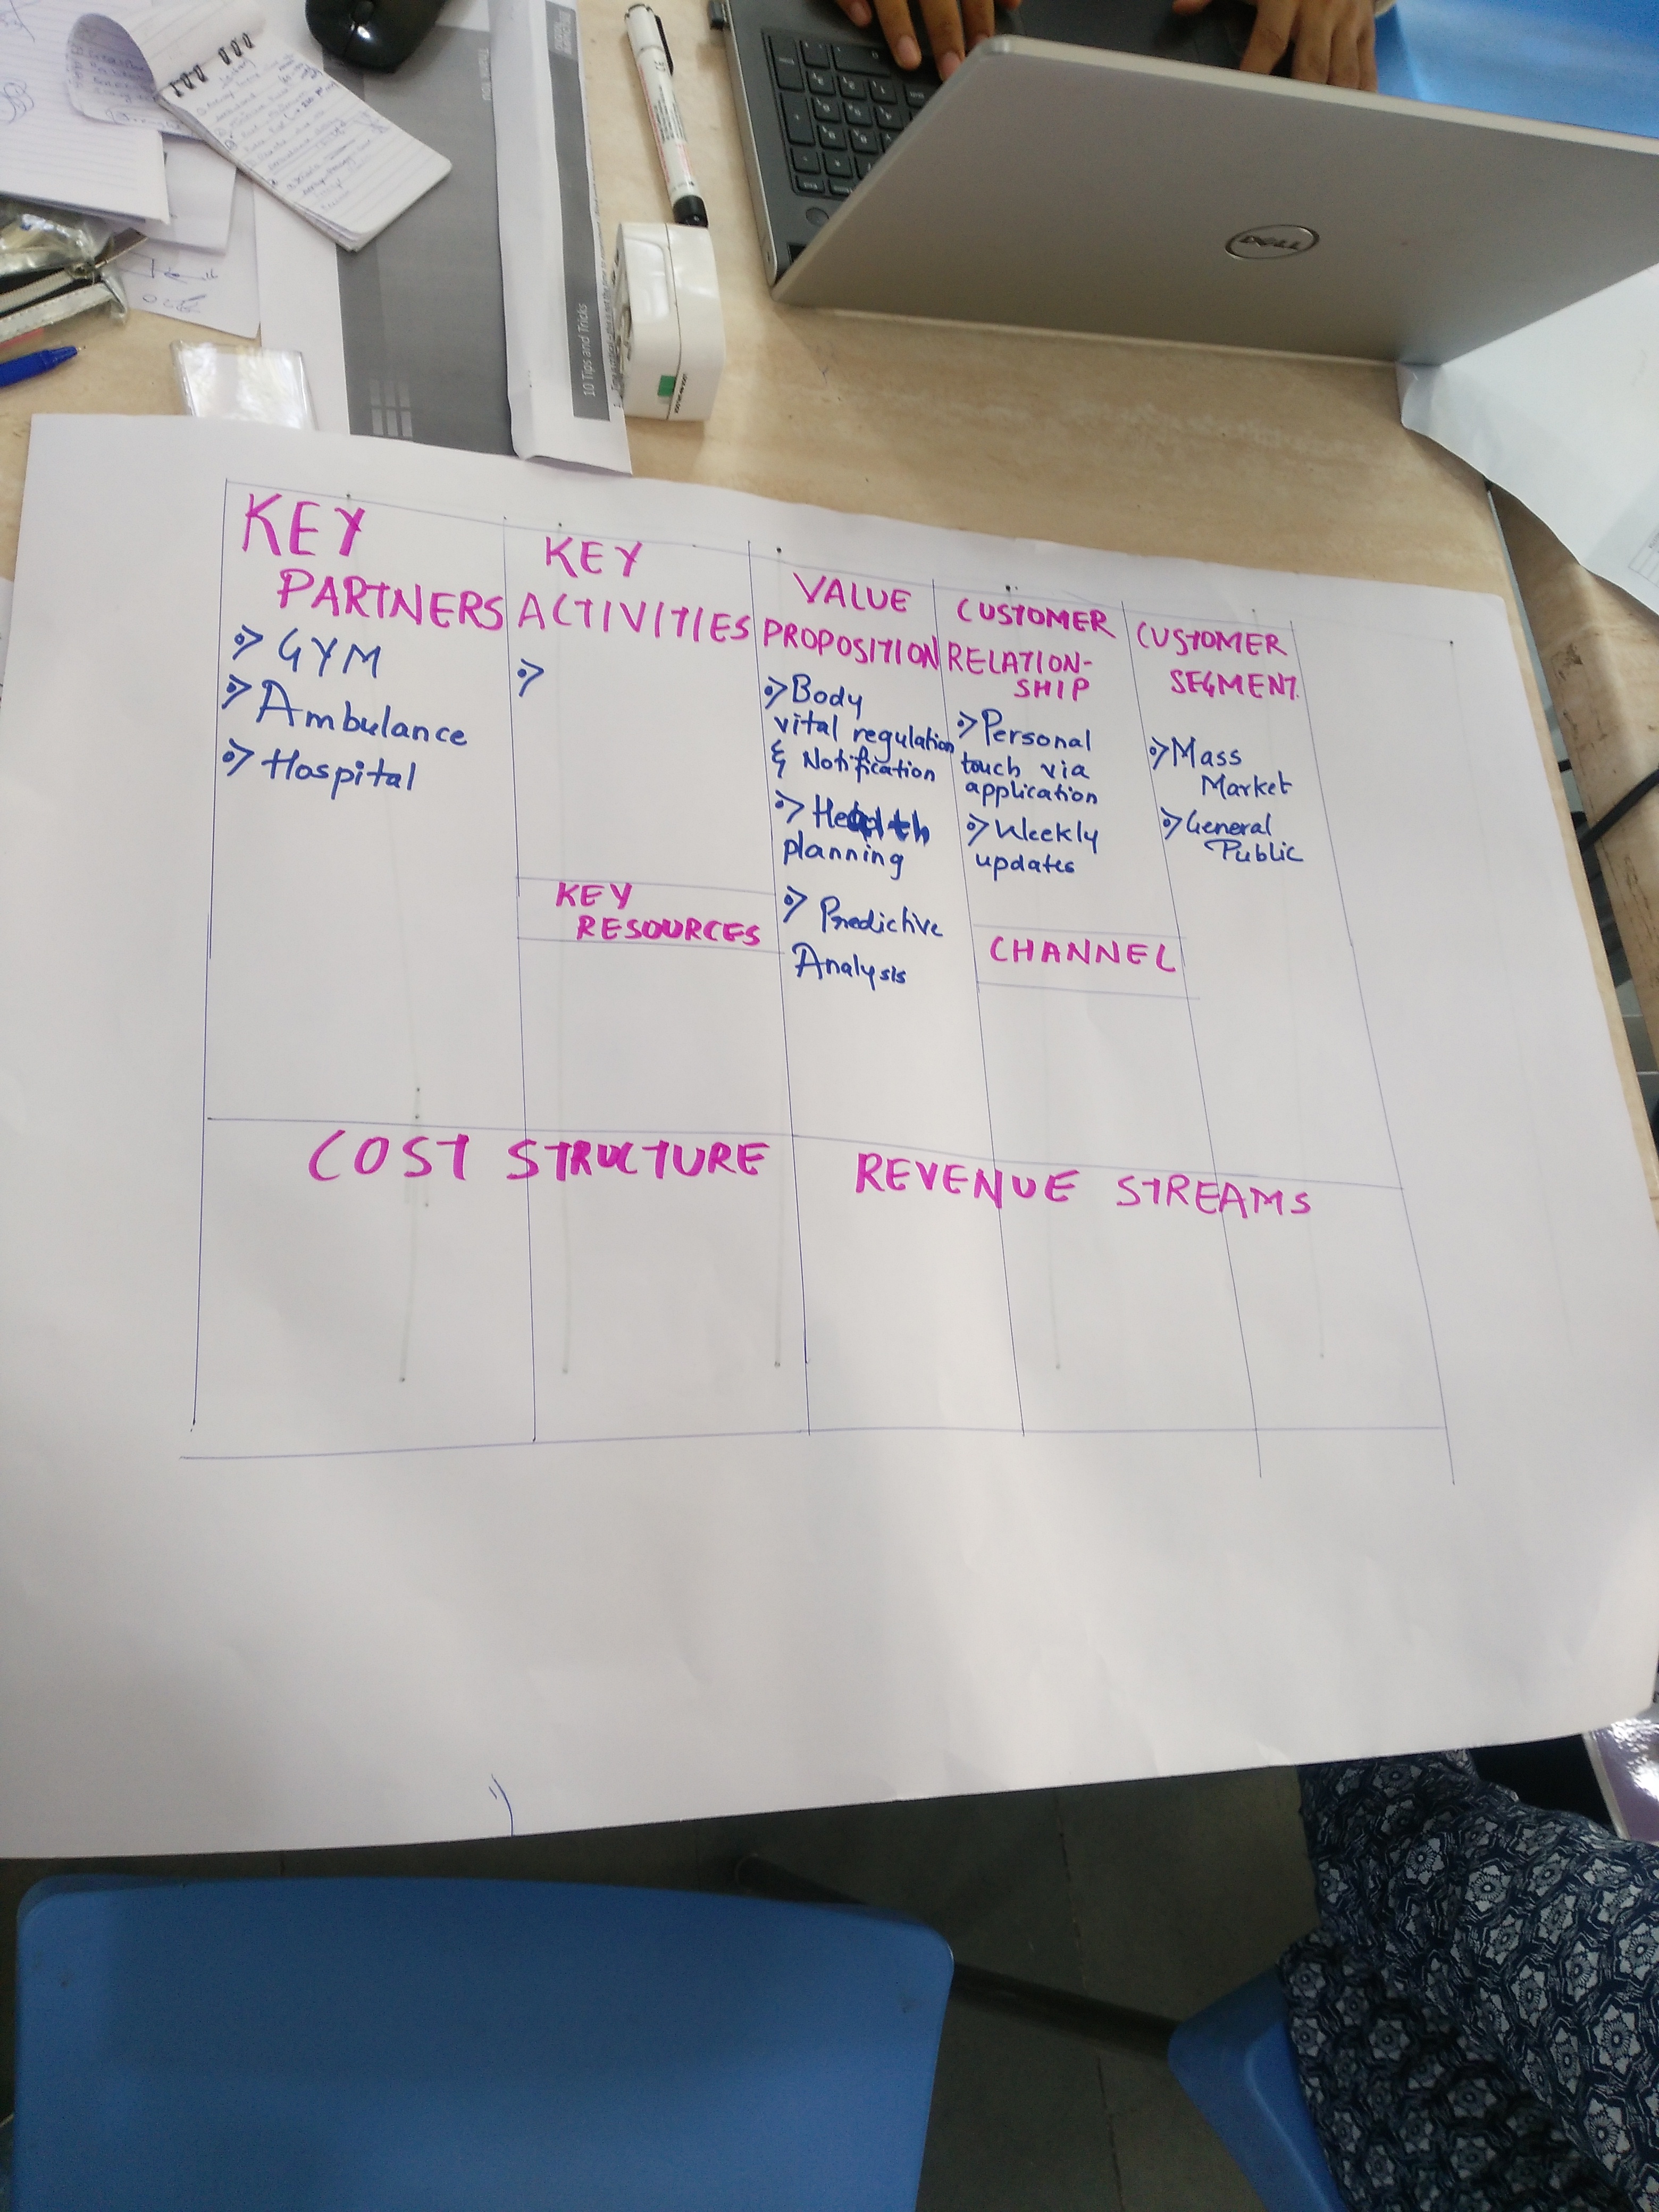 DELL
10 Tips and Tricks
KEY
PARTNERS
GYM
Ambulance
Hospital
KEY
ACTIVITIES
KEY
RESOURCES
VALUE
PROPOSITION
Body
vital regulation
& Notification
Health
planning
Predictive
Analysis
CUSTOMER
RELATION-
SHIP
Personal
touch via
application
Weekly
updates
CHANNEL
CUSTOMER
SEGMENT.
Mass
Market
General
Public
COST STRUCTURE
REVENUE STREAMS